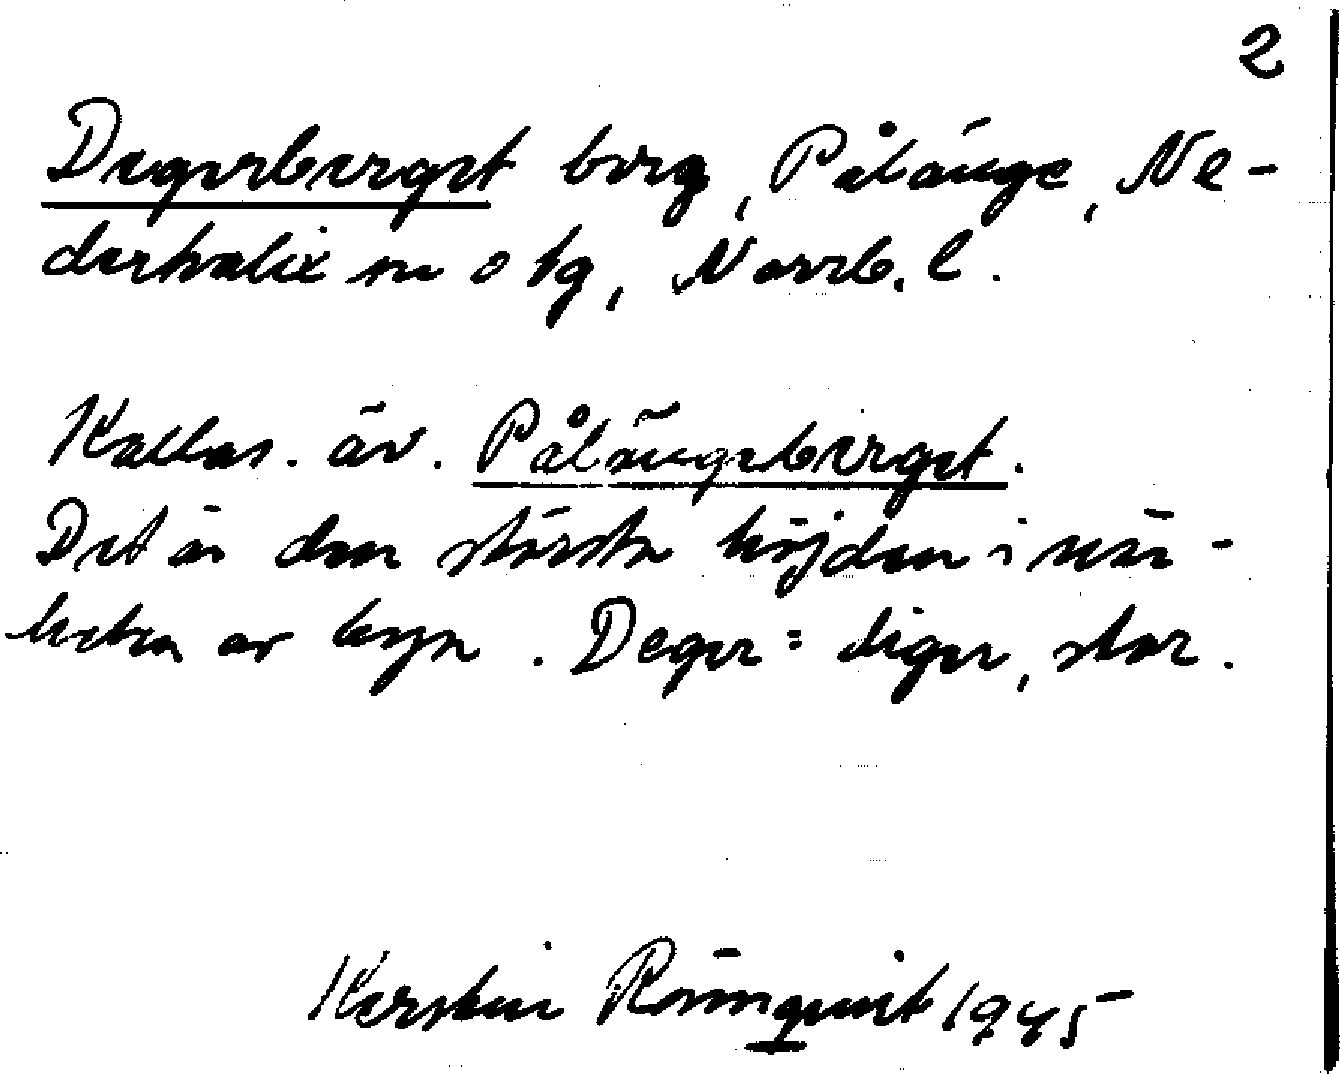 2
Degerberget berg, Pålänge, Ne-
derkalix sn o tg, Norrb. l.
Kallas. äv. Pålängeberget.
Det är den största höjden i när-
heten av byn. Deger = diger, stor.
Kerstin Rönnquist 1945